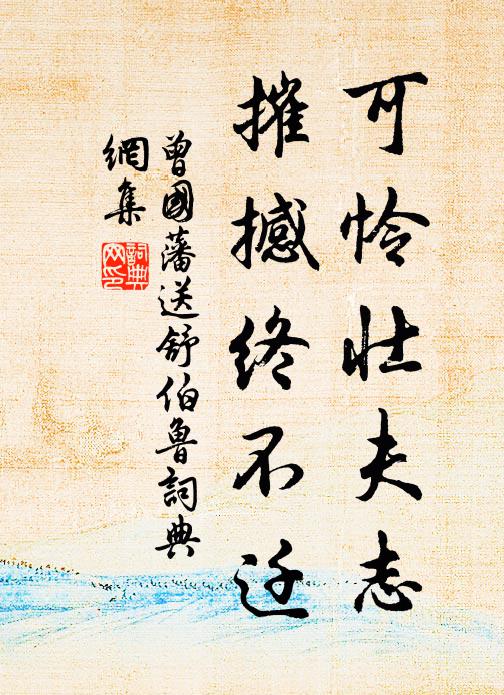 可怜壮夫志
摧撼终不迁
曾國藩送舒伯魯詞典
網集
詞典网印